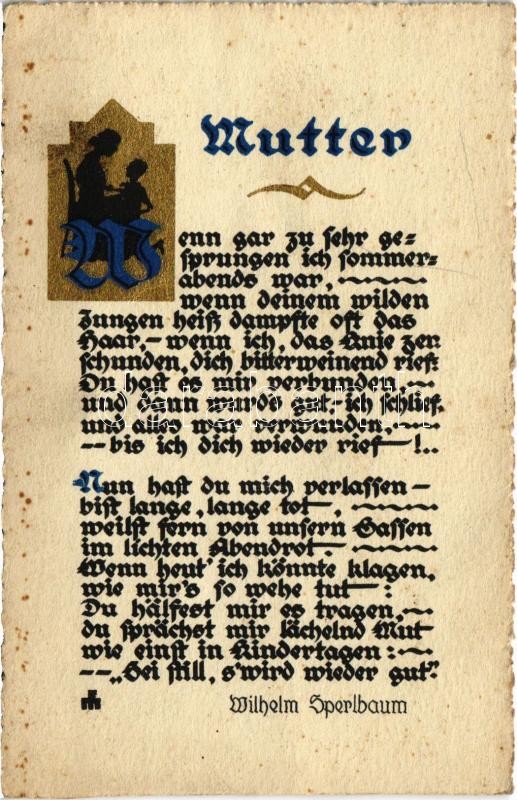 Mutter
Wenn gar zu sehr ge-
sprungen ich sommer-
abends war,
wenn deinem wilden
Jungen heiß dampfte oft das
Haar, – wenn ich, das Knie zer
schunden, dich bitterweinend rief:
Du hast es mir verbunden
und dann wurde gut, ich schlief.
und alles war verwunden.
-- bis ich dich wieder rief – !..
Nun hast du mich verlassen –
bist lange, lange tot,
weilst fern von unsern Gassen
im lichten Abendrot.
Wenn heut' ich könnte klagen,
wie mir's so wehe tut:
Du hälfest mir es tragen,
du sprächst mir lächelnd Mut
wie einst in Kindertagen:
-- „Sei still, s'wird wieder gut“.
Wilhelm Sperlbaum
darabanth